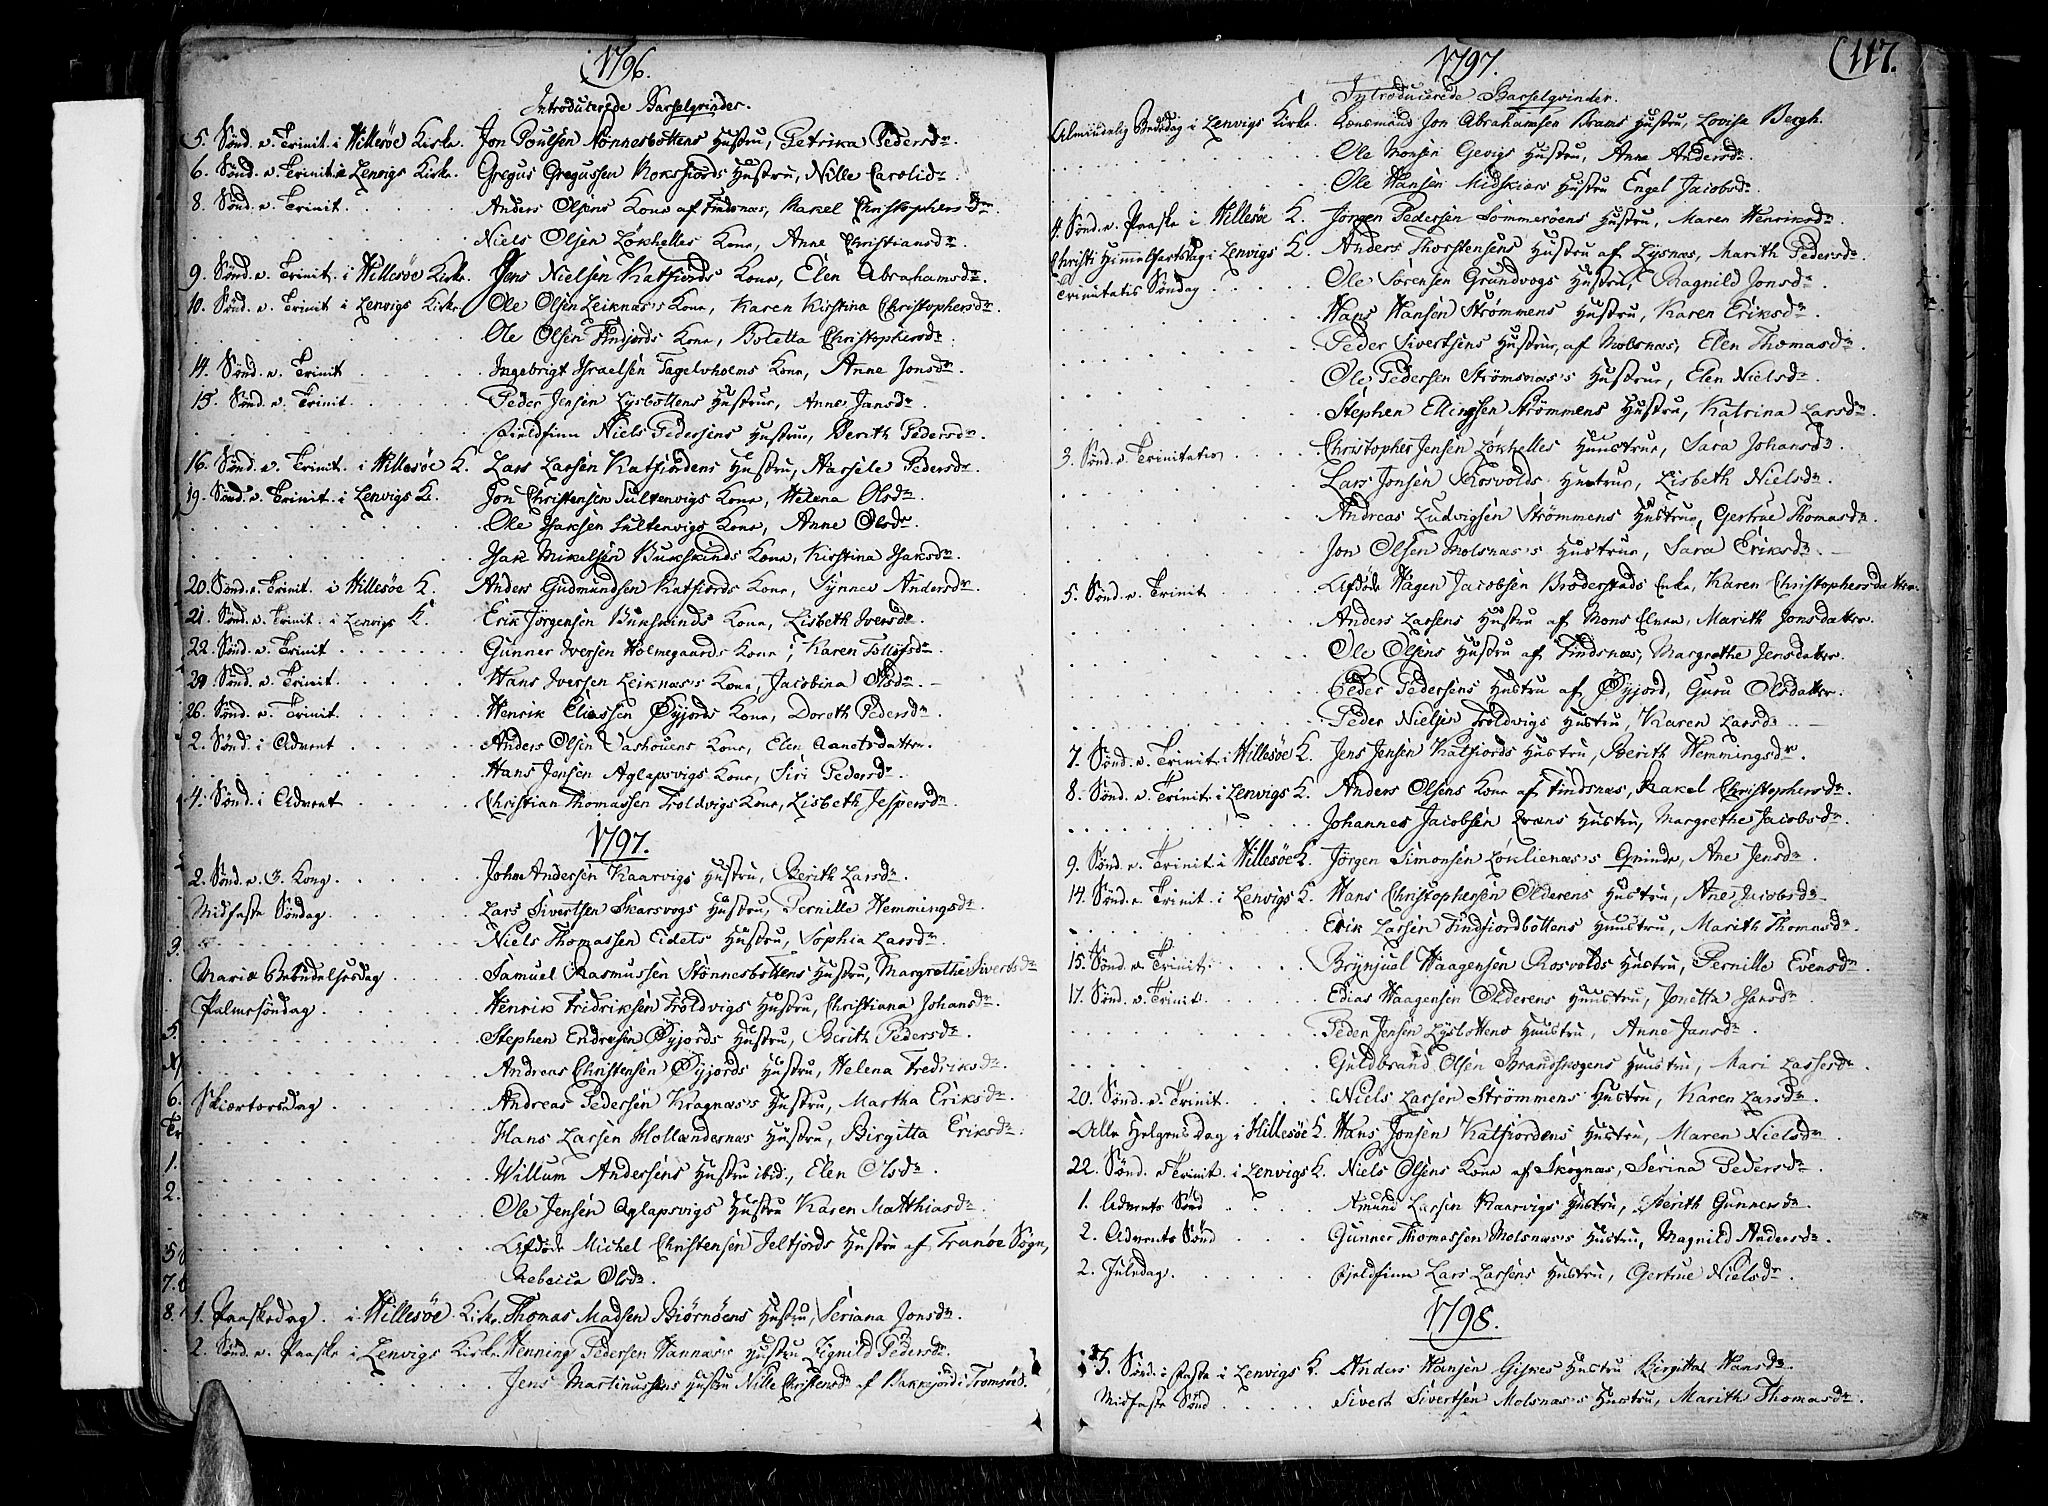 1796.
Introducerede Barselqvinder.
5. Sønd. e. Trinit. i Hillesøe Kirke. Jon Poulsen Stønnesbottens Hustru, Petrika Pedersdr.
6. Sønd. e. Trinit. i Lenvigs Kirke. Gregus Gregussen Rokssjords Hustru, Nille Carolidr.
8. Sønd. e. Trinit. Anders Olsens Kone af Findsnæs, Rakel Christophersdr.
Niels Olsen Løkhelles Kone, Anne Christiansdr.
9. Sønd. e. Trinit. i Hillesøe Kirke. Jens Nielsen Katfjords Kone, Elen Abrahamsdr.
10. Sønd. e. Trinit i Lenvigs Kirke Ole Olsen Leiknæs's Kone, Karen Kirstina Christophersdr.
Ole Olsen Findjords Kone, Boletta Christophersdr.
14. Sønd. e. Trinit Ingebrigt Israelsen Tagelvholms Kone, Anne Jonsdr.
15. Sønd. e. Trinit. Peder Jensen Lysbottens Hustrue, Anne Jansdr.
Fieldfinn Niels Pedersens Hustrue, Berith Pedersdr.
16. Sønd. e. Trinit. i Hillesøe K. Lars Larsen Katfiordens Hustru, Aarsile Pedersdr.
19. Sønd. e. Trinit. i Lenvigs K. Jon Christensen Sultenvigs Kone, Helena Olsdr.
Ole Isaksen Sultenvigs Kone, Anne Olsdr.
Isak Mikelsen Bukskinds Kone, Kirstina Isaksdr.
20. Sønd. e. Trinit. i Hillesøe K. Anders Gudmundsen Katfjords Kone, Synnev Andersdr.
21. Sønd. e. Trinit. i Lenvigs K. Erik Jørgensen Bukskinds Kone, Lisbeth Iversdr.
22. Sønd. e. Trinit Gunner Iversen Holmegaards Kone, Karen Tollofsdr.
Sønd. e. Trinit. Hans Iversen Leiknæs's Kone, Jacobina Olsdr.
26. Sønd. e. Trinit. Henrik Eliassen Øyjords Kone, Doroth Pedersdr.
2. Sønd. i Advent Anders Olsen Vashouens Kone, Elen Aanetsdatter.
Hans Jensen Aglapsvigs Kone, Siri Pedersdr.
4. Sønd. i Advent Christian Thomassen Troldvigs Kone, Lisbeth Jespersdr.
1797.
2. Sønd. e. 3. Kong. John Andersen Kaarvigs Hustru, Berith Larsdr.
Midfaste Søndag. Lars Sivertsen Skarsvogs Hustru, Pernille Hemmingsdr.
Niels Thomassen Eidets Hustru, Sophia Larsdr.
Mariæ Bebudelsesdag Samuel Rasmussen Stønnesbottens Hustru, Margrethe Sivertsdr.
Palmesøndag. Henrik Fridriksen Troldvigs Hustru, Christiana Johansdr.
Stephen Endresen Øyjords Hustru, Berith Pedersdr.
Andreas Christensen Øyjords Hustru, Helena Fredriksdr.
Skiærtorsdag Andreas Pedersen Kragnæs's Hustru, Martha Eriksdr.
Hans Larsen Hollændernæs Hustru, Birgitta Eriksdr.
Willum Andersens Hustru ibid., Elen Olsdr.
Ole Jensen Aglapsvigs Hustru Karen Matthiasdr.
Afdøde Michel Christensen Jeltjords Hustru af Tranøe Sogn,
Rebecca Olsdr.
1. Paaskedag. i Hillesøe Kirke Thomas Madsen Biørnøens Hustru, Seriana Jonsdr.
2. Sønd. e. Paaske i Lenvigs Kirke. Henning Pedersen Vannæs's Hustru Zignild Pedersdr.
Jens Martinussens Hustru Nille Christensdr af Bakkejord i Tromsøe S.
1797.
(117.
Introducerede Barselqvinder.
Almindelig Bededag i Lenvigs Kirke. Lensmand Jon Abrahamsen Brams Hustru, Lovise Bergh.
Ole Monsen Gevigs Hustru, Anne Andersdr.
Ole Hansen Midskiærs Hustru Engel Jacobsdr.
4. Sønd. e. Paaske i Hillesøe K. Jørgen Pedersen Sommerøens Hustru, Maren Henriksdr.
Christi Himmelfartsdag i Lenvigs K. Anders Thorstensens Hustru af Lysnæs, Marith Pedersdr.
Trinitatis Søndag Ole Sørensen Grundvogs Hustru, Magnild Jonsdr.
Hans Hansen Strømmens Hustru, Karen Eriksdr.
Peder Sivertsens Hustrue, af Molsnæs, Elen Thomasdr.
Ole Pedersen Strømsnæs's Hustrue, Elen Nielsdr.
Stephen Ellingsen Strømmens Hustru, Katrina Larsdr.
3. Sønd. e. Trinitatis Christopher Jensen Løkhelles Huustrue, Sara Johansdr.
Lars Jonsen Rosvolds Hustrue, Lisbeth Nielsdr.
Andreas Ludvigsen Strømmens Hustrue, Gertrue Thomasdr.
Jon Olsen Molsnæs's Hustrue, Sara Eriksdr.
5. Sønd. e. Trinit Afdøde Hagen Jacobsen Broderstads Enke, Karen Christophersdatter.
Anders Larsens Hustru af Mons Elven, Marith Jonsdatter.
Ole Olsens Hustru af Findsnæs, Margrethe Jensdatter.
Peder Pedersens Hustru af Øyjord, Guru Olsdatter.
Peder Nielsen Troldvigs Hustru, Karen Larsdr.
7. Sønd. e. Trinit. i Hillesøe K. Jens Jensen Katfiords Hustru, Berith Hemmingsdr.
8. Sønd. e. Trinit. i Lenvigs K. Anders Olsens Kone af Findsnæs, Rakel Christophersdr.
Johannes Jacobsen Evæns Hustru, Margrethe Jacobsdr.
9. Sønd. e. Trinit. i Hillesøe K. Jørgen Simonsen Løklienæs's Qvinde, Ane Jensdr.
14. Sønd. e. Trinit. i Lenvigs K. Hans Christophersen Olderens Hustru, Ane Jacobsdr.
Erik Larsen Findfiordbottens Huustru, Marith Thomasdr.
15. Sønd. e. Trinit. Brynjuel Haagensen Rosvolds Hustru, Pernille Evensdr.
17. Sønd. e. Trinit. Edias Haagensen Olderens Huustru, Jonetta Hansdr.
Peder Jensen Lysbottens Huustru, Anne Jansdr.
Guldbrand Olsen Brandskogens Huustru, Mari Lassesdr.
20. Sønd. e. Trinit. Niels Larsen Strømmens Hustru, Karen Larsdr.
Alle Helgens Dag i Hillesøe K. Hans Jonsen Katfiordens Hustru, Maren Nielsdr.
22. Sønd. e. Trinit. i Lenvigs K. Niels Olsens Kone af Skognæs, Serina Pedersdr.
1. Advents Sønd Amund Larsen Kaarvigs Hustru, Berith Gunnersdr.
2. Advents Sønd Gunner Thomassen Molsnæs's Hustru, Magnild Andersdr.
2. Juledag. Fjeldfinn Lars Larsens Hustru, Gertrue Nielsdr.
1798.
5. Sønd. i Faste i Lenvigs K. Anders Hansen Gisnes Hustru Birgitta Hansdr.
Midfaste Sønd Sivert Sivertsen Molsnæs's Hustru, Marith Thomasdr.